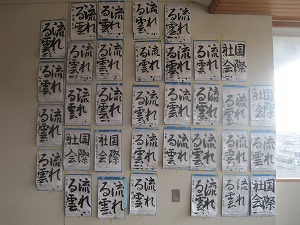 国際
社会
流れ
る雲
国際
社会
国際
社会
流れ
る雲
流れ
る雲
流れ
る雲
流れ
る雲
流れ
る雲
流れ
る雲
流れ
る雲
流れ
る雲
流れ
る雲
流れ
る雲
流れ
る雲
流れ
る雲
流れ
る雲
流れ
る雲
流れ
る雲
流れ
る雲
流れ
る雲
流れ
る雲
流れ
る雲
国際
社会
流れ
る雲
流れ
る雲
流れ
る雲
流れ
る雲
国際
社会
流れ
る雲
流れ
る雲
流れ
る雲
流れ
る雲
流れ
る雲
流れ
る雲